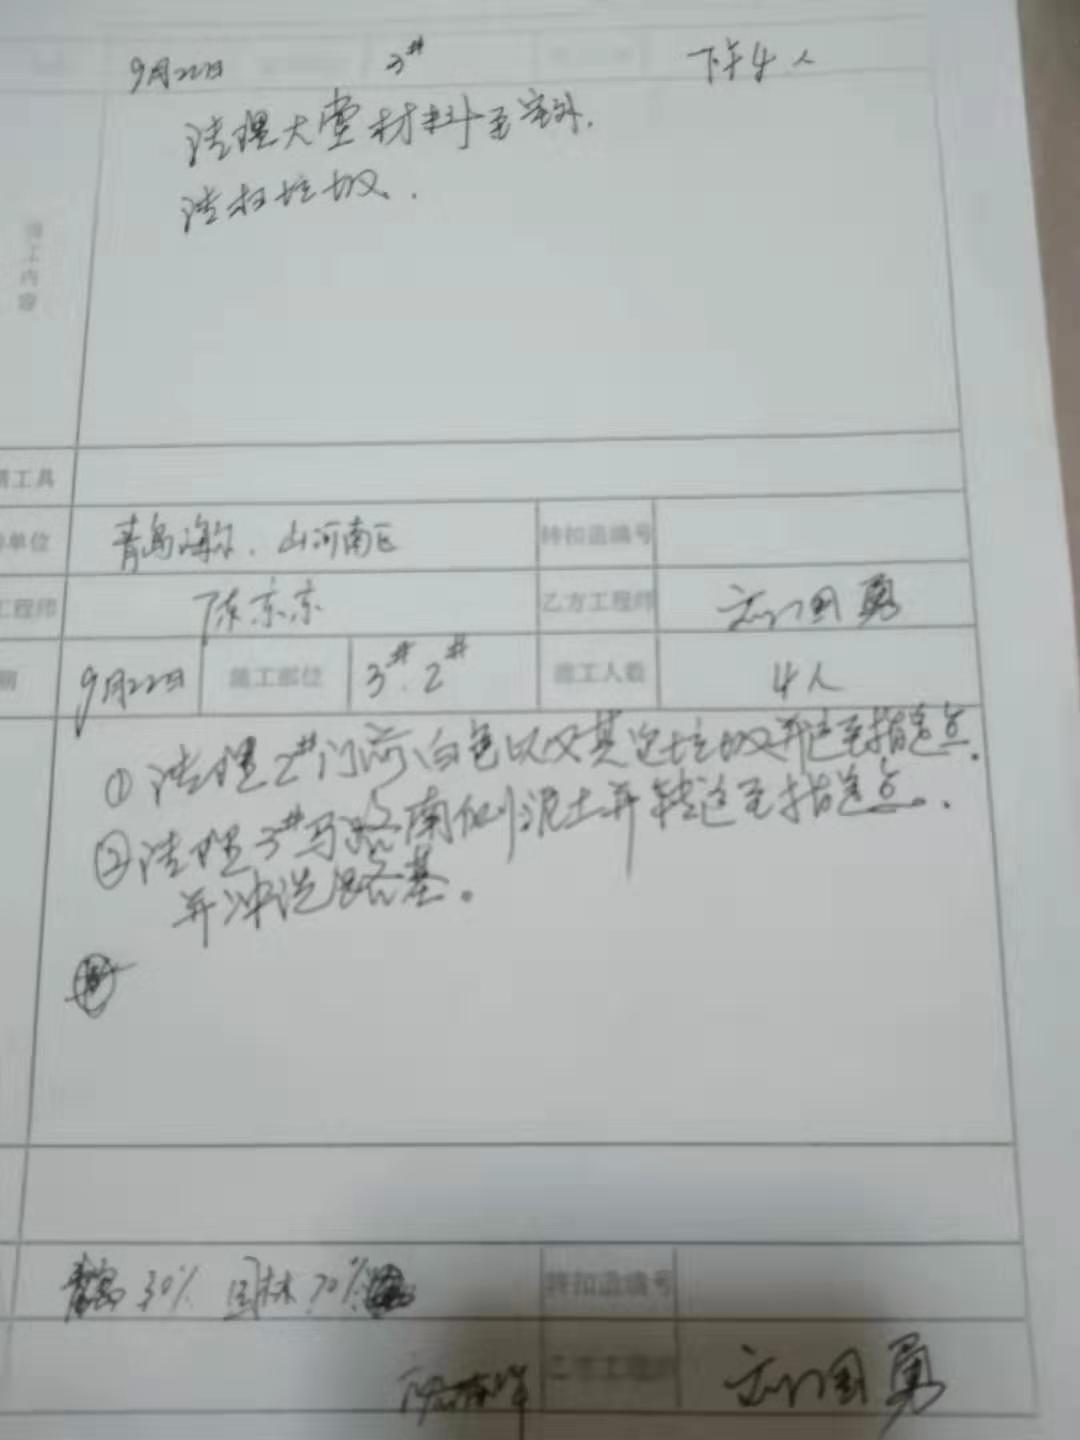 9月22日 3# 下午4人
清理大堂材料至室外.
清扫垃圾.
施工内容
工具
单位 青岛海尔、山河南区 转扣追编号
工程师 陈京京 乙方工程师 国勇
期 9月22日 施工部位 3#.2# 施工人数 4人
①清理2#门前白色以及其它垃圾并运至指定点.
②清理3#马路南侧泥土并转运至指定点.
并冲洗路基。
青岛30% 园林70% 转扣追编号
乙方工程师 国勇